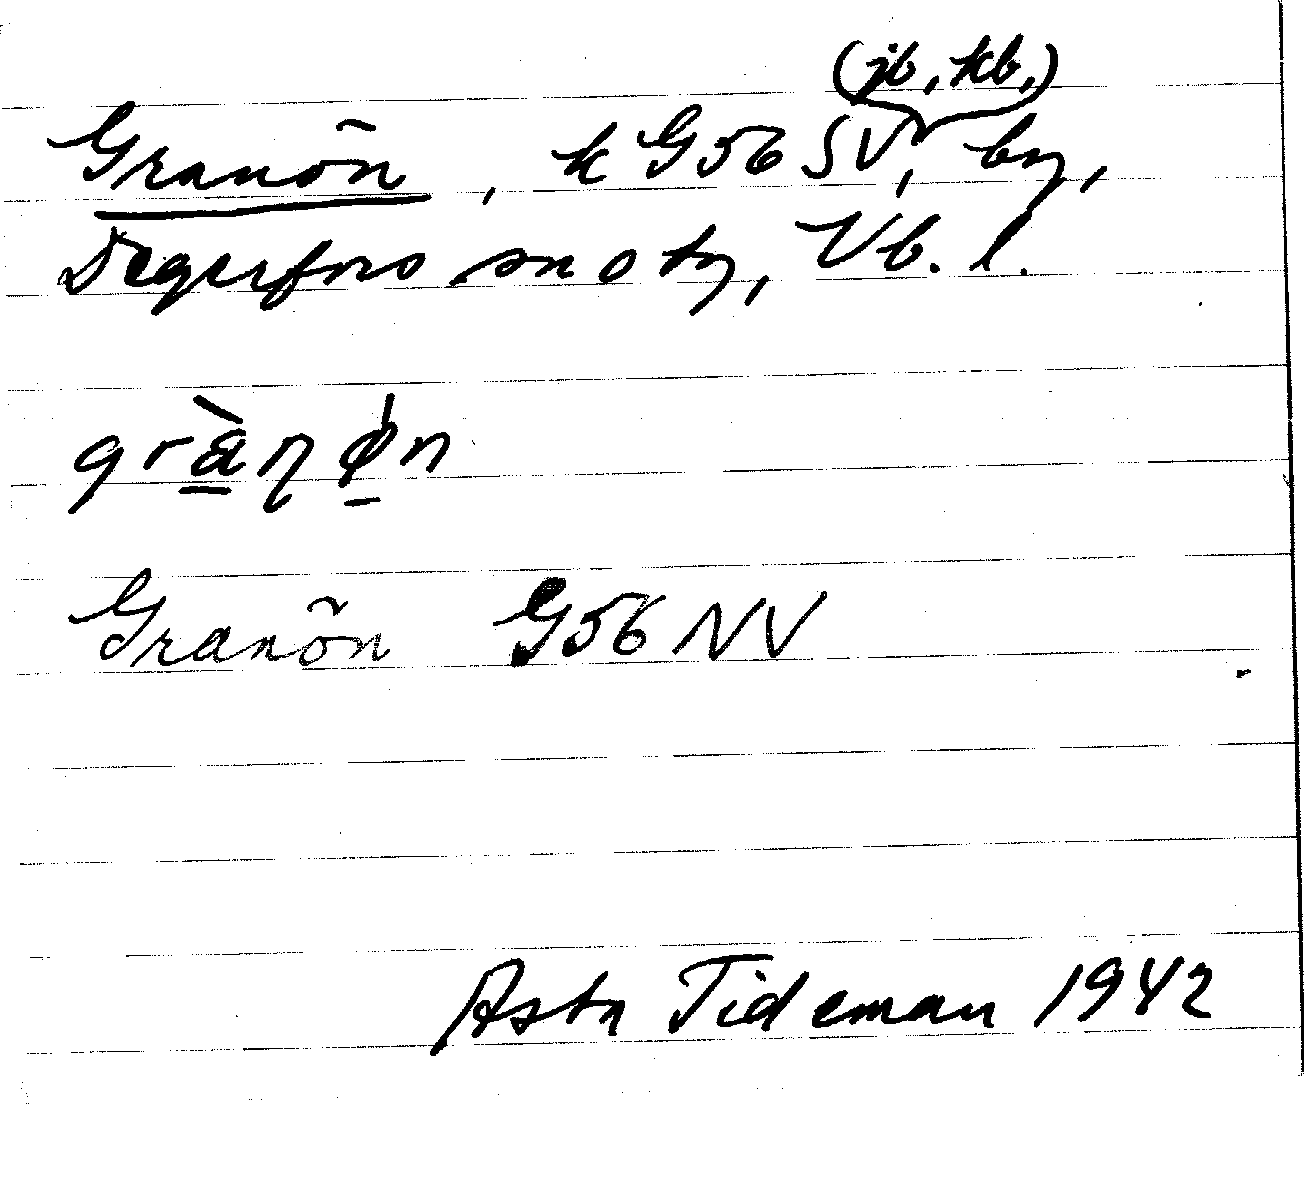 (jb, kb.)
Granön, k G56 SV, by,
Degerfors snoty, Vb. l.
gràṉø̱n
Granön G56 NV
Asta Tideman 1942